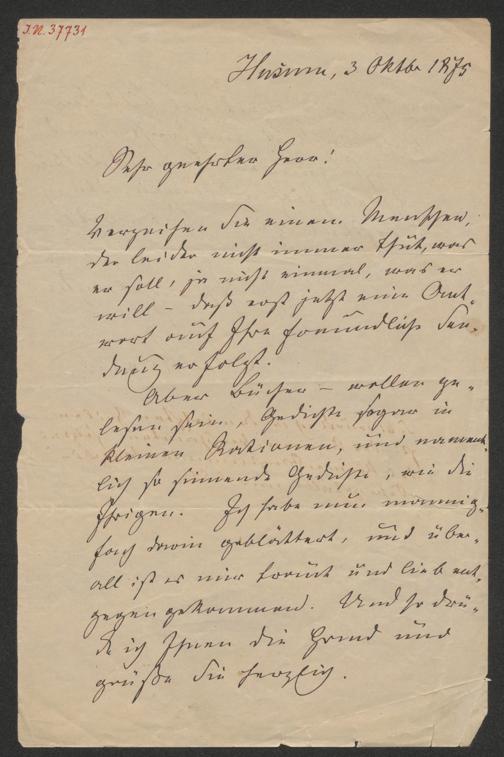 I.N. 37731
Husum, 3 Oktbr 1875
Sehr geehrter Herr!
Verzeihen Sie einem Menschen,
der leider nicht immer thut, was
er soll, ja nicht einmal, was er
will – daß erst jetzt eine Ant-
wort auf Ihre freundliche Sen-
dung erfolgt.
Aber Bücher – wollen ge-
lesen sein, Gedichte sogar in
kleinen Rationen, und nament-
lich so sinnende Gedichte, wie die
Ihrigen. Ich habe nun mannig-
fach darin geblättert, und über-
all ist es mir traut und lieb ent-
gegen gekommen. Und so drü-
cke ich Ihnen die Hand und
grüße Sie herzlich.